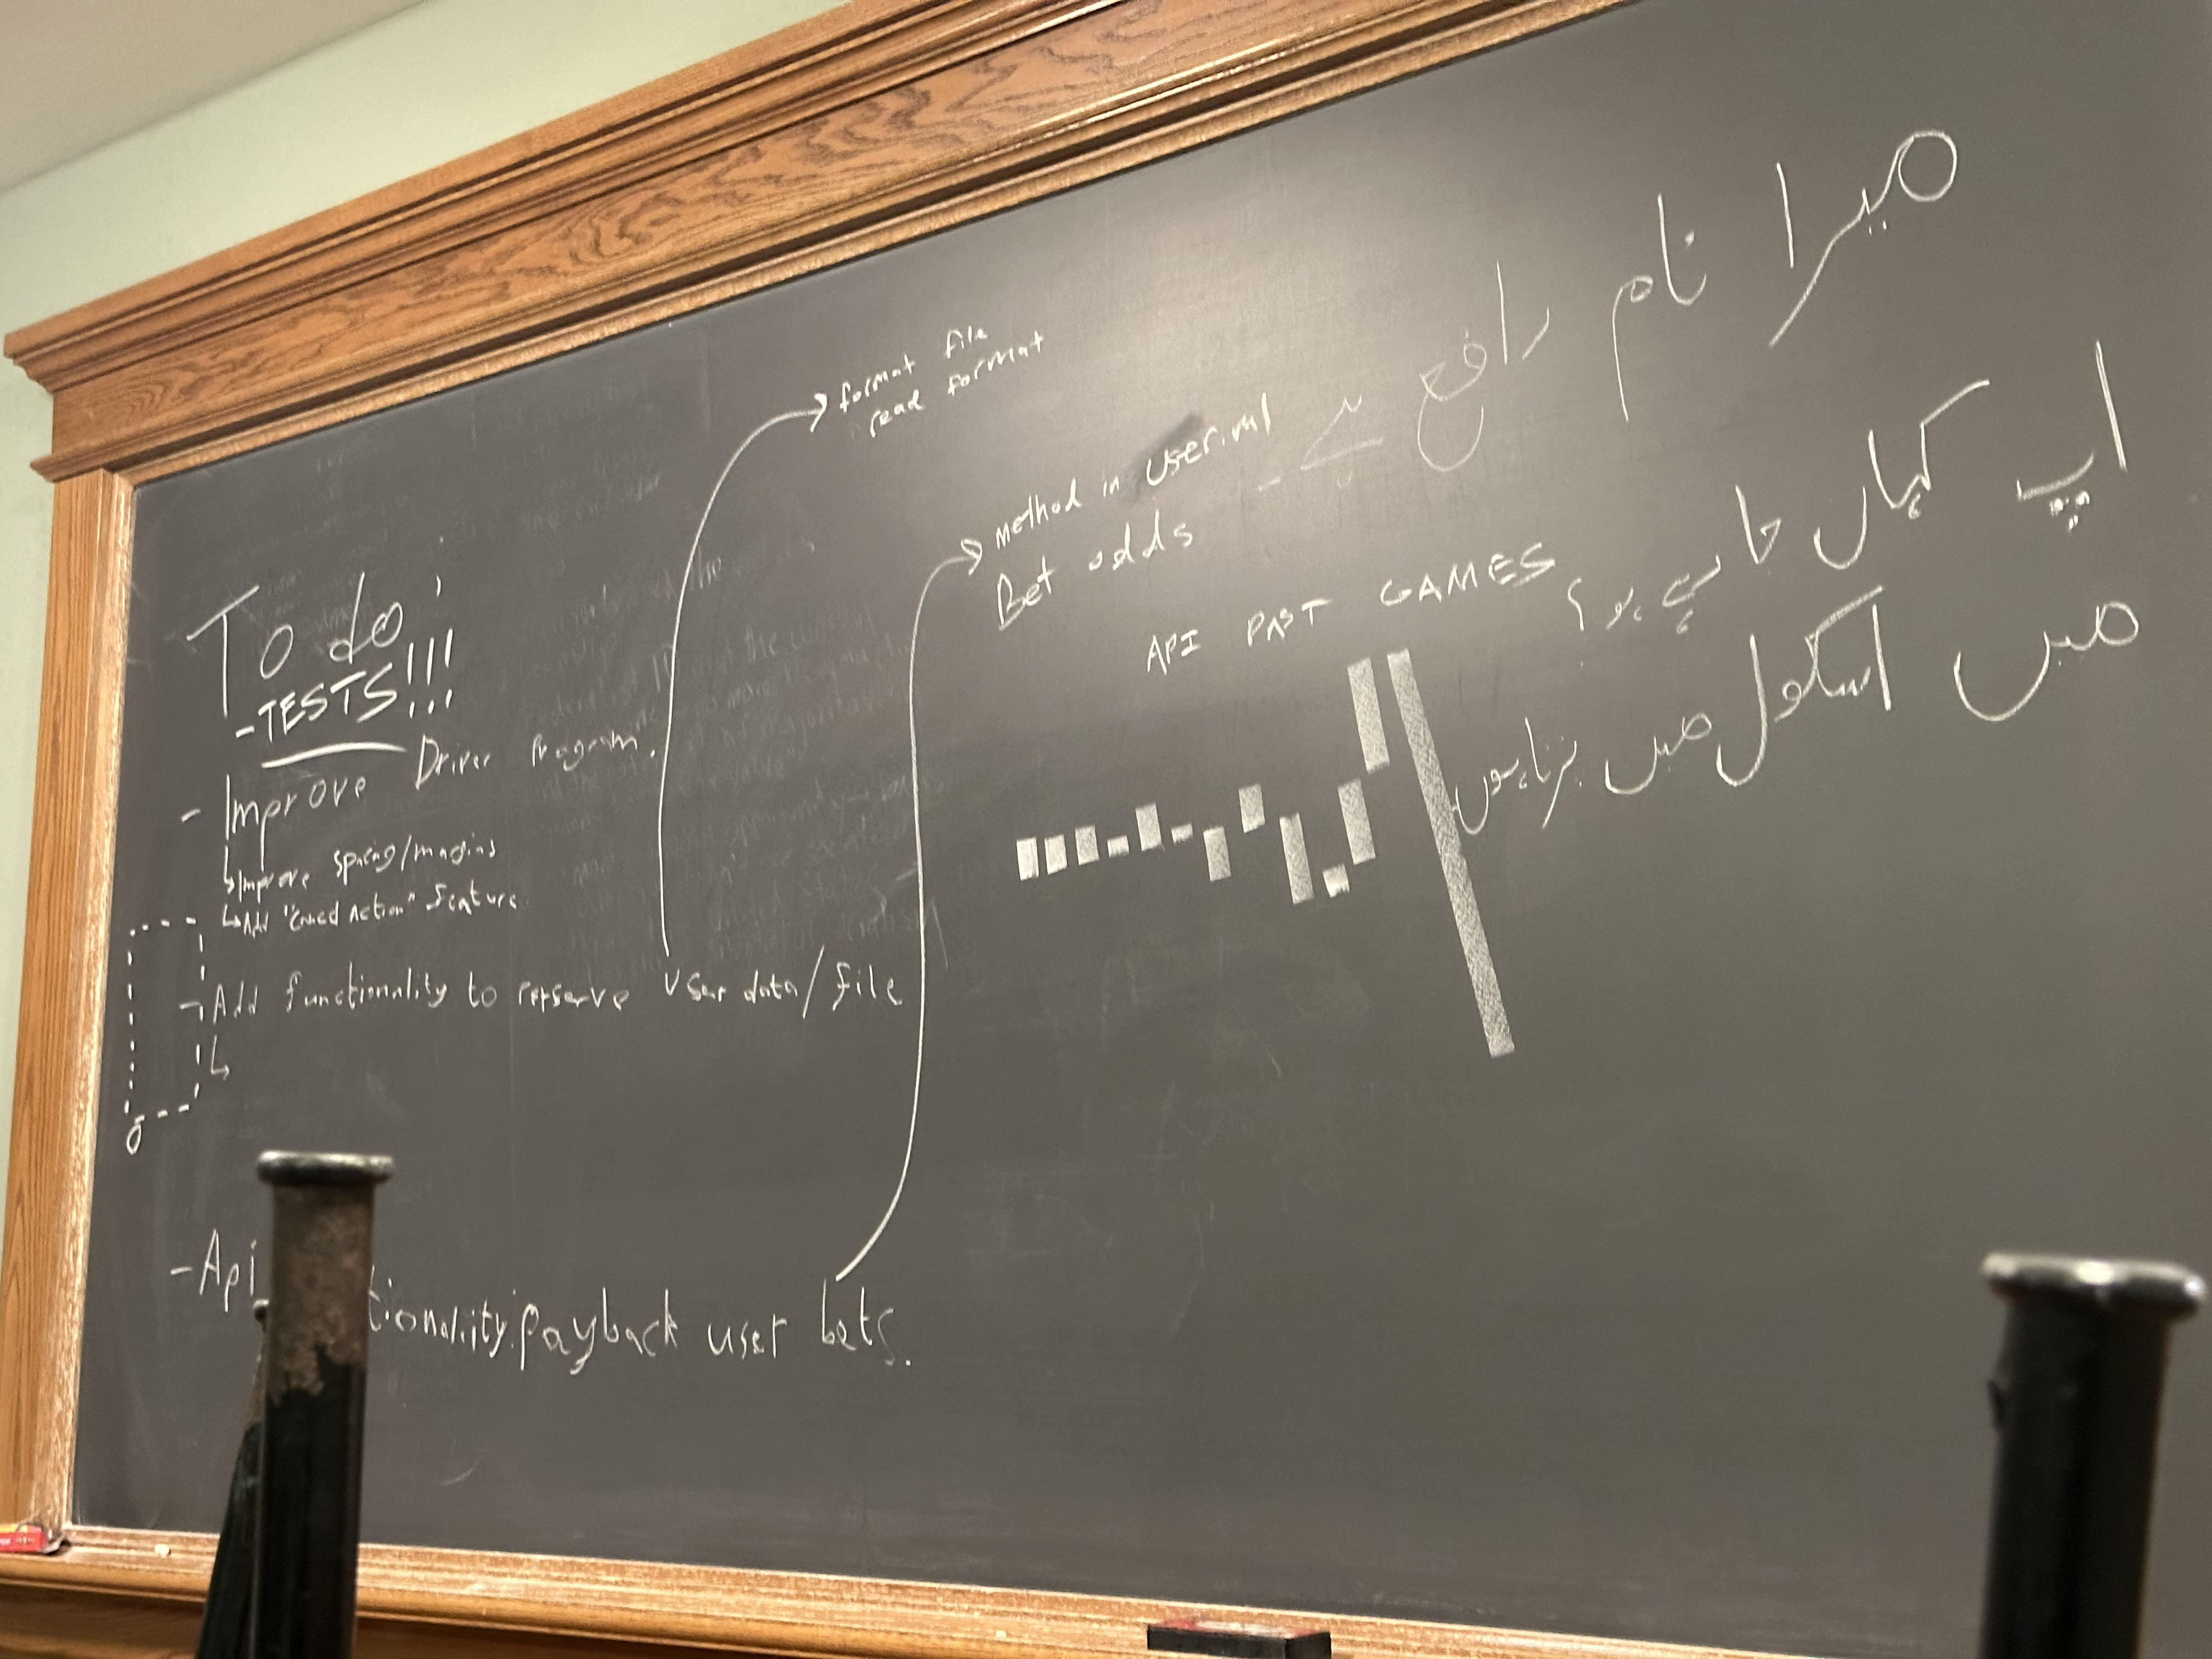 To do:
-TESTS!!!
- Improve Driver Program.
↳Improve spacing/margins
↳Add "Cancel Action" feature
-Add functionality to user data/file
↳
-Api tionality: payback user bets.
format file
read format
method in user.ml
Bet odds
API PAST GAMES
میرا نام رافع ہے۔
اپ کہاں جا ہو؟
میں اسکول میں